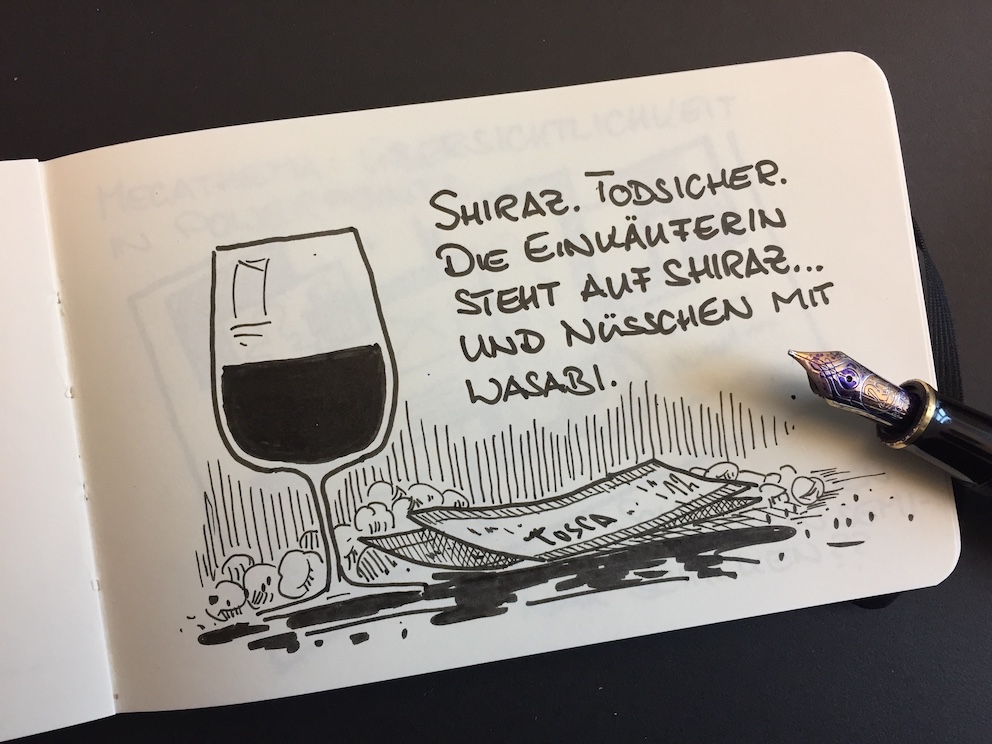 SHIRAZ. TODSICHER.
DIE EINKÄUFERIN
STEHT AUF SHIRAZ...
UND NÜSSCHEN MIT
WASABI.
TOSCA